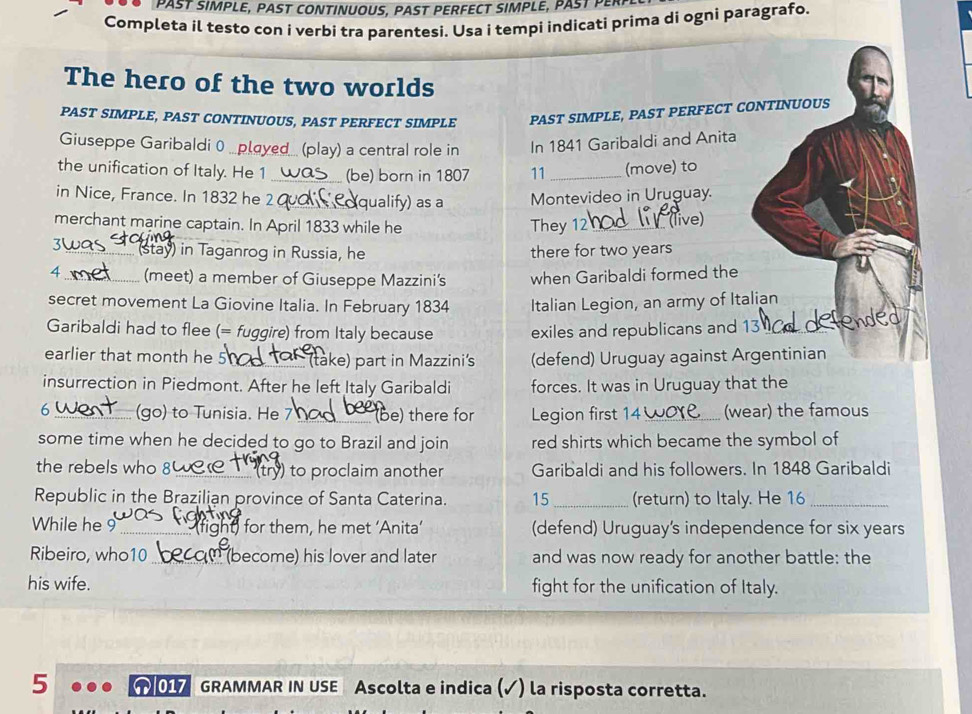 PAST SIMPLE, PAST CONTINUOUS, PAST PERFECT SIMPLE, PAST
Completa il testo con i verbi tra parentesi. Usa i tempi indicati prima di ogni paragrafo.
The hero of the two worlds
PAST SIMPLE, PAST CONTINUOUS, PAST PERFECT SIMPLE
Giuseppe Garibaldi 0 played (play) a central role in
the unification of Italy. He 1 was (be) born in 1807
in Nice, France. In 1832 he 2 qualified (qualify) as a
merchant marine captain. In April 1833 while he
3 was staying (stay) in Taganrog in Russia, he
4 met (meet) a member of Giuseppe Mazzini's
secret movement La Giovine Italia. In February 1834
Garibaldi had to flee (= fuggire) from Italy because
earlier that month he 5 had taken (take) part in Mazzini's
insurrection in Piedmont. After he left Italy Garibaldi
6 went (go) to Tunisia. He 7 had been (be) there for
some time when he decided to go to Brazil and join
the rebels who 8 were trying (try) to proclaim another
Republic in the Brazilian province of Santa Caterina.
While he 9 was fighting (fight) for them, he met 'Anita'
Ribeiro, who10 became (become) his lover and later
his wife.
PAST SIMPLE, PAST PERFECT CONTINUOUS
In 1841 Garibaldi and Anita
11 ________ (move) to
Montevideo in Uruguay.
They 12 had lived (live)
there for two years
when Garibaldi formed the
Italian Legion, an army of Italian
exiles and republicans and 13 had defended
(defend) Uruguay against Argentinian
forces. It was in Uruguay that the
Legion first 14 wore (wear) the famous
red shirts which became the symbol of
Garibaldi and his followers. In 1848 Garibaldi
15 ________ (return) to Italy. He 16 ________
(defend) Uruguay's independence for six years
and was now ready for another battle: the
fight for the unification of Italy.
5 017 GRAMMAR IN USE Ascolta e indica (✓) la risposta corretta.